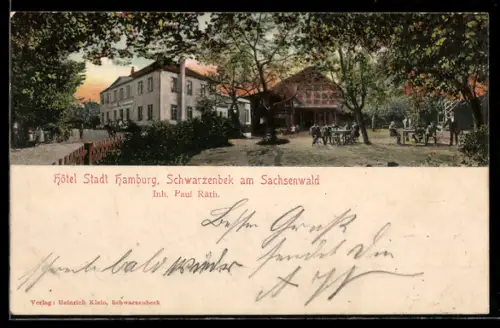 Hôtel Stadt Hamburg, Schwarzenbek am Sachsenwald
Inh. Paul Räth.
Besten Gruß
sendet Dir
schreib bald wieder
Verlag: Heinrich Klein, Schwarzenbeck